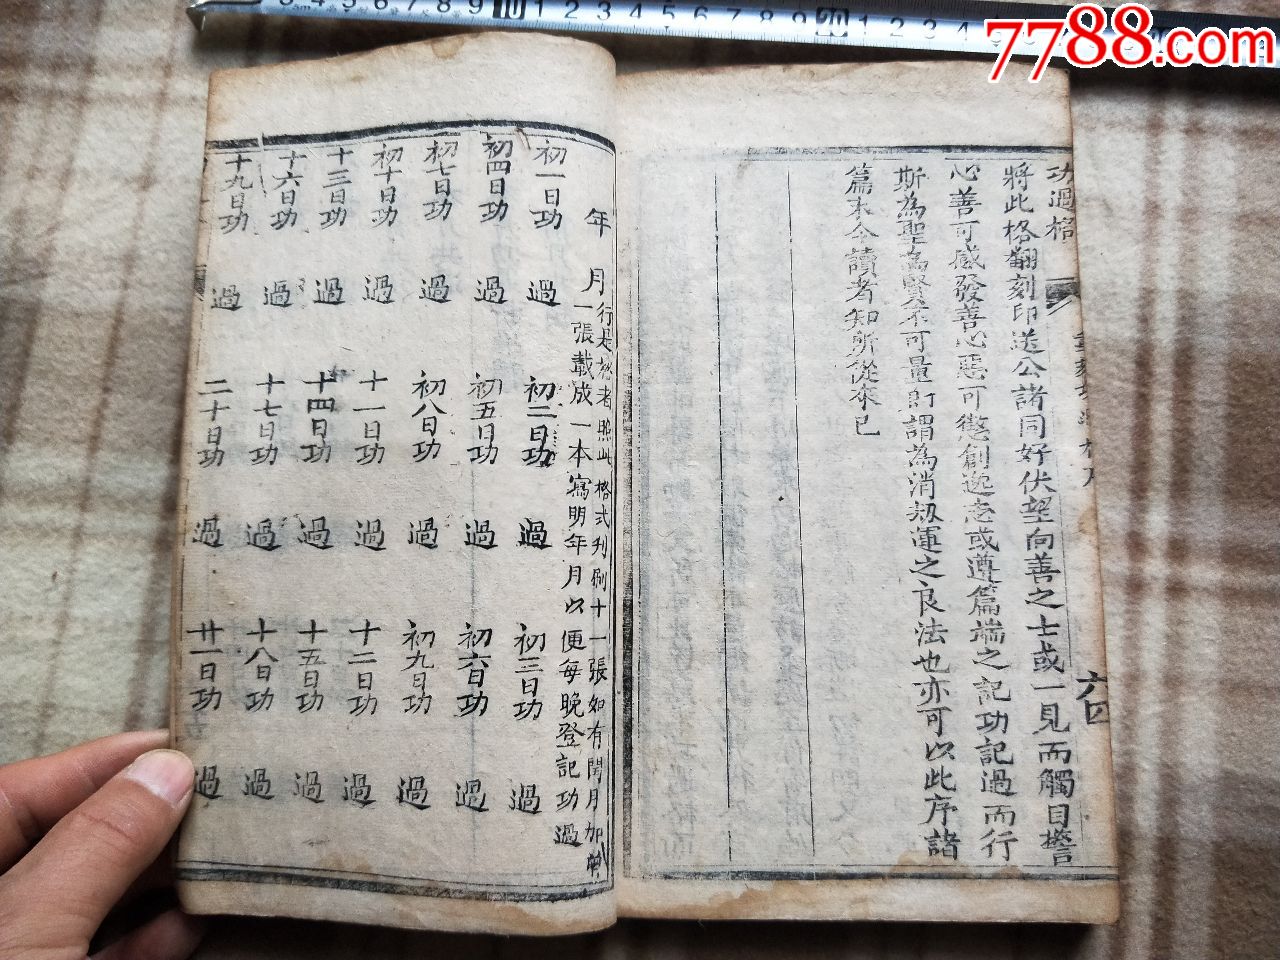 7788.com
功過格
將此格翻刻印送公諸同好伏望向善之士或一見而觸目警
心善可感發善心惡可懲創逸志或遵篇端之記功記過而行
斯為聖為賢不可量訂謂為消劫運之良法也亦可以此序諸
篇末令讀者知所從來已
六四
年 月
行是格者照此格式刊刷十一張如有閏月加
一張載成一本寫明年月以便每晚登記功過
初一日功 過 初二日功 過 初三日功 過
初四日功 過 初五日功 過 初六日功 過
初七日功 過 初八日功 過 初九日功 過
初十日功 過 十一日功 過 十二日功 過
十三日功 過 十四日功 過 十五日功 過
十六日功 過 十七日功 過 十八日功 過
十九日功 過 二十日功 過 廿一日功 過
3 4 5 6 7 8 9 10 1 2 3 4 5 6 7 8 9 20 1 2 3 4